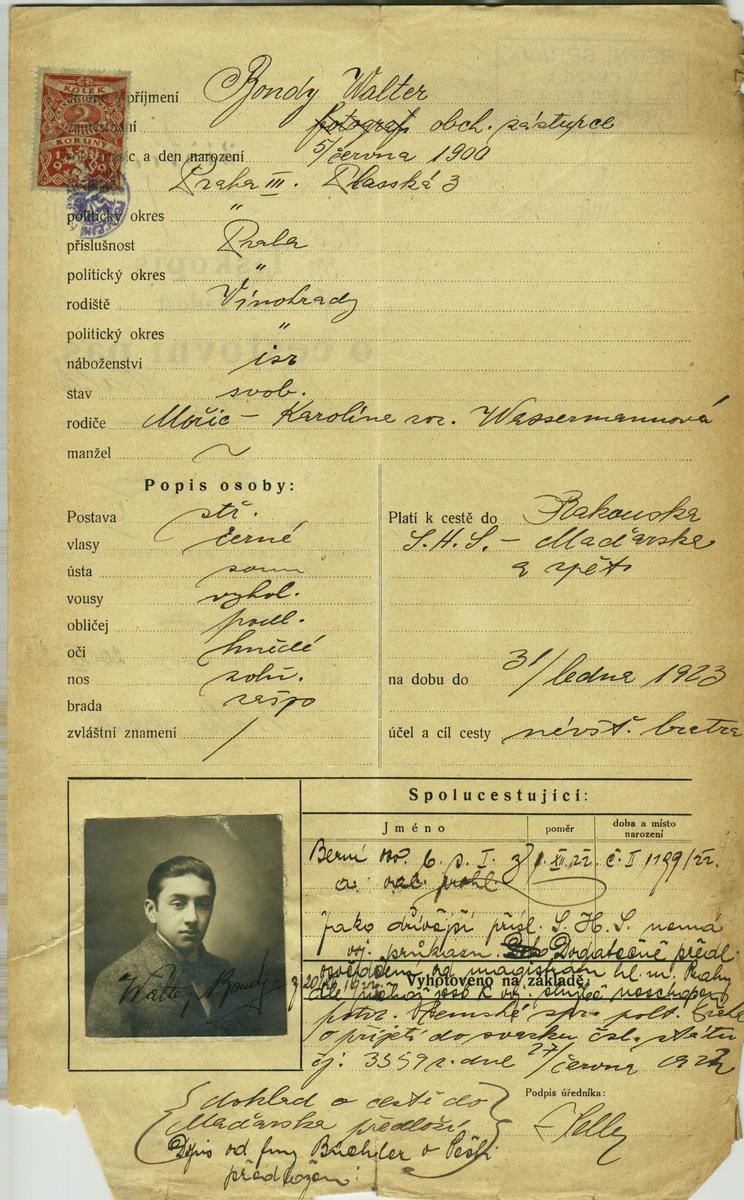 ČR
KOLEK
2
KORUNY
příjmení Bondy Walter
fotograf obch. zástupce
a den narození 5/června 1900
Praha III. Plasská 3
politický okres "
příslušnost Praha
politický okres "
rodiště Vinohrady
politický okres "
náboženství isr
stav svob.
rodiče Mořic – Karoline roz. Wassermannová
manžel ~
Popis osoby:
Postava stř.
vlasy černé
ústa soum
vousy vyhol.
obličej podl.
oči hnědé
nos
brada
zvláštní znamení /
Platí k cestě do Rakouska
S.H.S. – Maďarska
a zpět
na dobu do 31/ledna 1923
účel a cíl cesty návšt. bratra
Spolucestující:
Jméno poměr doba a místo narození
Berní č. I 1199/22.
a
Jako dřívější přísl. S.H.S. nemá
voj. průkazu. Dodatečně předl.
osvědčení od magistrátu hl. m. Prahy
Vyhotoveno na základě
potvr. Zemské spr. polit. 
o přijetí do svazku čsl. státu
čj: 3559 z dne 27/června 1922
Walter Bondy
doklad o cestě do
Maďarska předloží
Dopis od firmy Büchler v Pešti
předložen:
Podpis úředníka: